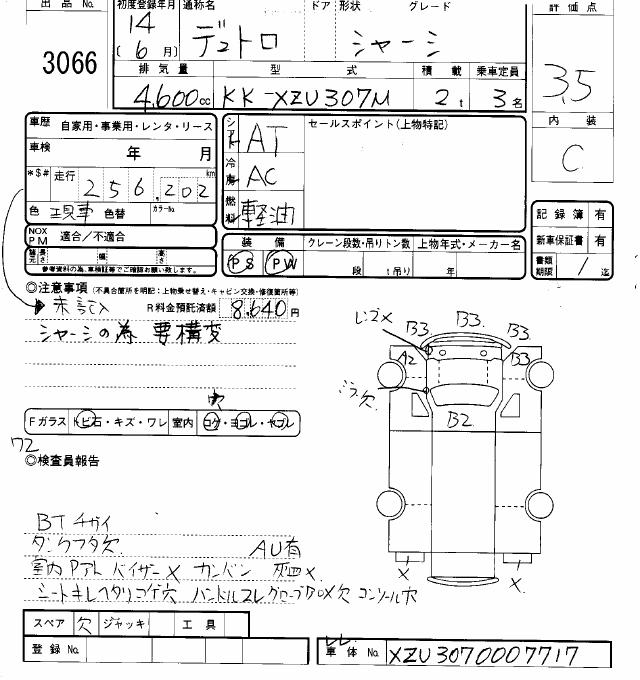 出品No. 初度登録年月 通称名 ドア形状 グレード 評価点
3066 14 (6月) デュトロ シャーシ 3.5
排気量 型式 積載 乗車定員
4,600cc KK-XZU307M 2t 3名
内装 C
車歴 自家用・事業用・レンタ・リース
シフト AT セールスポイント(上物特記)
車検 年 月
*$# 走行 256,202 km 冷房 AC
色 色替 カラーNo. 燃料 軽油
記録簿 有
NOX PM 適合/不適合
装備 クレーン段数・吊りトン数 上物年式・メーカー名
新車保証書 有
諸元 長さ 幅 高さ PS PW 段 t吊り 年
書類期限 / 迄
参考資料の為、車検証等でご確認お願い致します。
◎注意事項 (不具合箇所を明記:上物乗せ替え・キャビン交換・修復箇所等)
未記入 R料金預託済額 8,640円
シャーシの為 要構変
B3 B3 B3
A2 B3
欠
B2
穴
Fガラス トビ石・キズ・ワレ 室内 コゲ・ヨゴレ・ヤブレ
72
◎検査員報告
BTチガイ
AU有
X X
室内 バイザーX カンバン 灰皿X
シートキレヘタリコゲ穴 ハンドルスレ コンソール穴
スペア 欠 ジャッキ 工具
登録No. 車体No. XZU3070007717